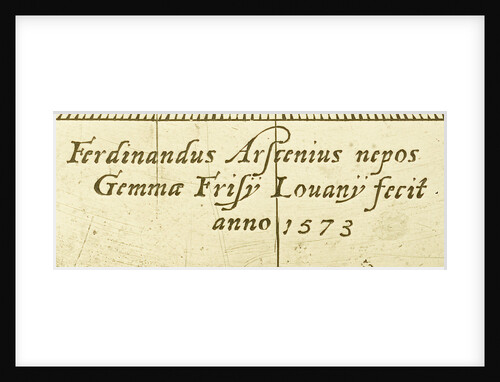 Ferdinandus Arscenius nepos
Gemmæ Frisÿ Louanÿ fecit.
anno 1573